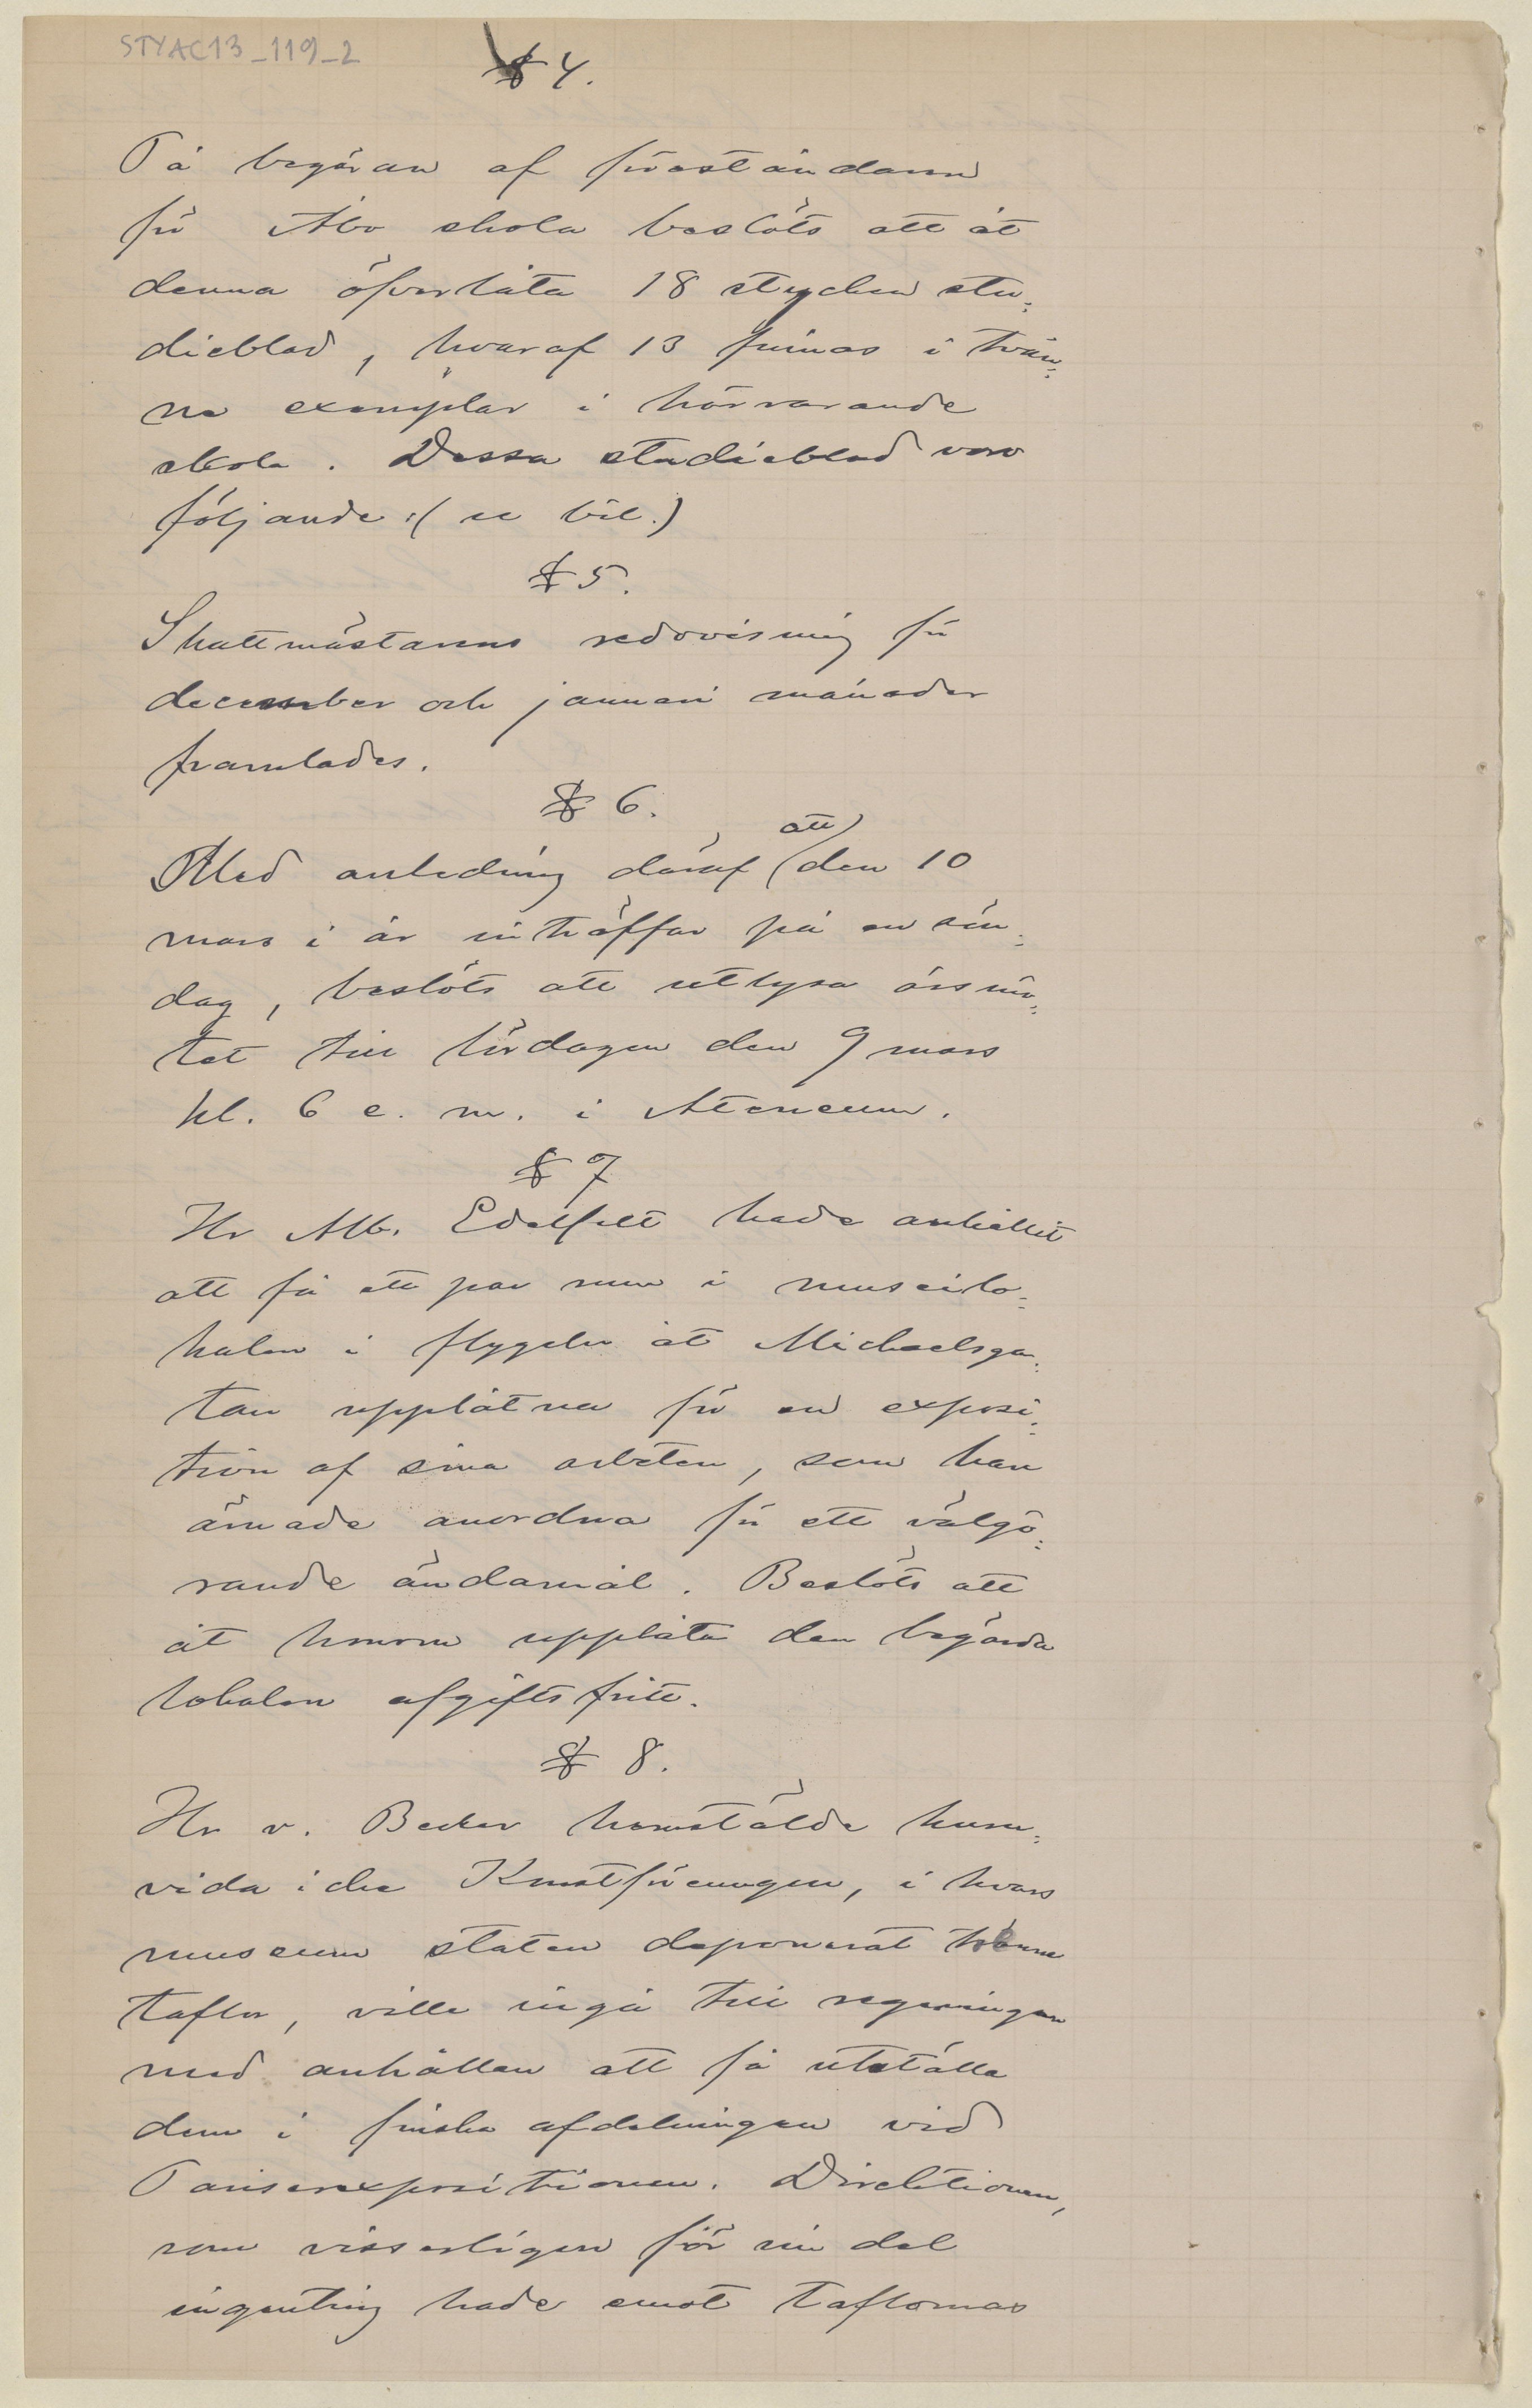 STYAC13_119_2
§ 4.
På begäran af föreståndaren
för Åbo skola beslöts att åt
denna öfverlåta 18 stycken stu-
dieblad, hvaraf 13 finnas i tvän-
ne exemplar i härvarande
skola. Dessa studieblad voro
följande: (se bil.)
§ 5.
Skattmästarens redovisning för
december och januari månader
framlades.
§ 6.
Med anledning däraf (att) den 10
mars i år inträffar på en sön-
dag, beslöts att utlysa årsmö-
tet till lördagen den 9 mars
kl. 6 e. m. i Ateneum.
§ 7
Hr Alb. Edelfelt hade anhållit
att få ett par rum i museilo-
kalen i flygeln åt Michaelsga-
tan upplåtna för en exposi-
tion af sina arbeten, som han
ämnade anordna för ett välgö-
rande ändamål. Beslöts att
åt honom upplåta den begärda
lokalen afgiftsfritt.
§ 8.
Hr v. Becker hemstälde huru-
vida icke Konstföreningen, i hvars
museum staten deponerat tvänne
taflor, ville ingå till regeringen
med anhållan att få utställa
dem i finska afdelningen vid
Pariserexpositionen. Direktionen,
som visserligen för sin del
ingenting hade emot taflornas